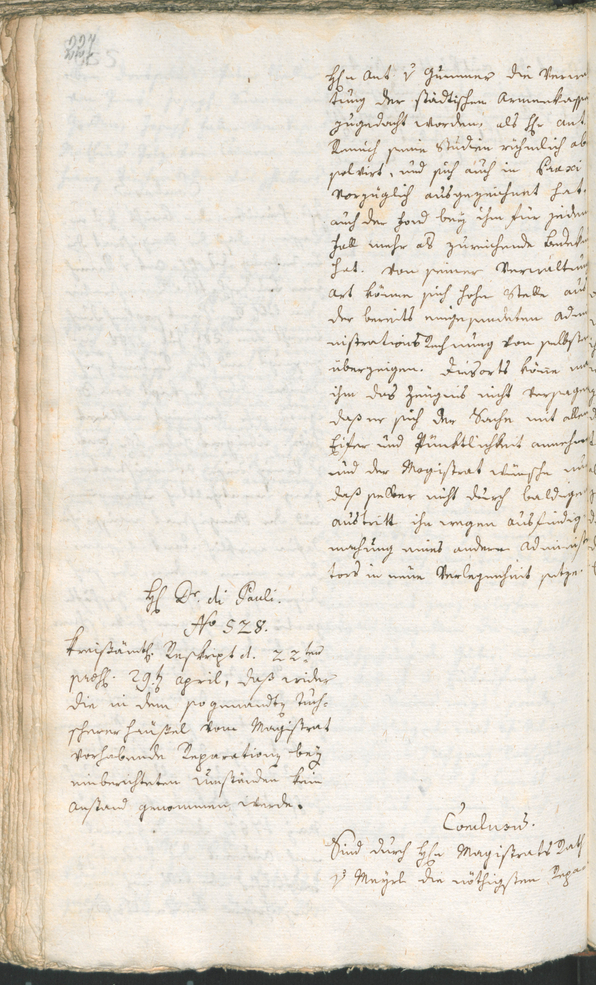 Hhn Ant v Gummer die Verwa
tung der städtischen Armenkasse
zugedacht worden, als Hr Ant
seine Studien rühmlich ab
solvirt, und sich auch in Praxi
vorzüglich ausgezeichnet hat.
auch der Fond bey ihm für jeden
Fall mehr als zureichende Bedek
hat. Von seiner Verwaltung
art könne sich hohe Stelle aus
der bereits eingesendeten Admi
nistrationsRechnung von selbsten
überzeigen. Diesorts könne ma
ihm das Zeugnis nicht versagen
daß er sich der Sache mit allem
Eifer und Pünktlichkeit annehme
und der Magistrat wünsche nur
daß selber nicht durch baldigen
austritt ihn wegen ausfindig
machung eines anderen Administra
tors in neue Verlegenheit setze.
Hh Dr. di Pauli.
No 528.
Kreisämtl. Reskript d. 22ten
praes. 29t april, daß wider
die in dem sogenandten Tuch-
scherer häusel vom Magistrat
vorhabende Reparation bey
einberichteten Umständen kein
anstand genommen werde.
Conclusum.
Sind durch Hhn Magistrats Rath
v Mayrl die nöthigsten Repa